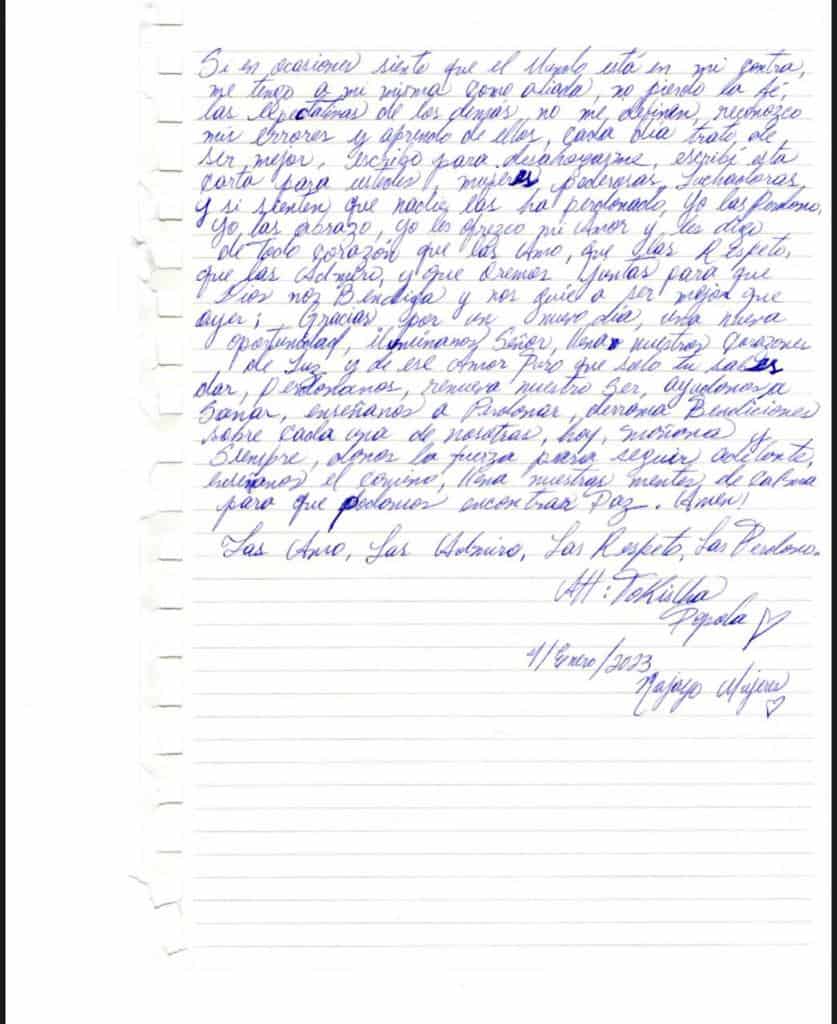 Si en ocasiones siento que el Mundo está en mi contra,
me tengo a mi misma como aliada, no pierdo la fé,
las expectativas de los demás no me definen, reconozco
mis errores y aprendo de ellos, cada dia trato de
ser mejor, escribo para desahogarme, escribí esta
carta para ustedes, mujeres poderosas, Luchadoras,
y si sienten que nadie las ha perdonado, yo las Perdono,
yo las abrazo, yo les ofrezco mi Amor y les digo
de Todo Corazón que las Amo, que las Respeto,
que las Admiro, y que Oremos Juntas para que
Dios nos Bendiga y nos guie a ser mejor que
ayer; Gracias por un nuevo día, una nueva
oportunidad, iluminanos Señor, llena nuestros Corazones
de Luz y de ese Amor Puro que solo tu sabes
dar, perdonanos, renueva nuestro Ser, ayudanos a
Sanar, enseñanos a Perdonar, derrama Bendiciones
sobre cada una de nosotras, hoy, mañana y
Siempre, danos la fuerza para seguir adelante,
enseñanos el camino, llena nuestras mentes de Calma
para que podamos encontrar Paz. Amen!
Las Amo, Las Admiro, Las Respeto, Las Perdono.
Att: Tokischa
Popola
1/Enero/2023
Najayo Mujeres